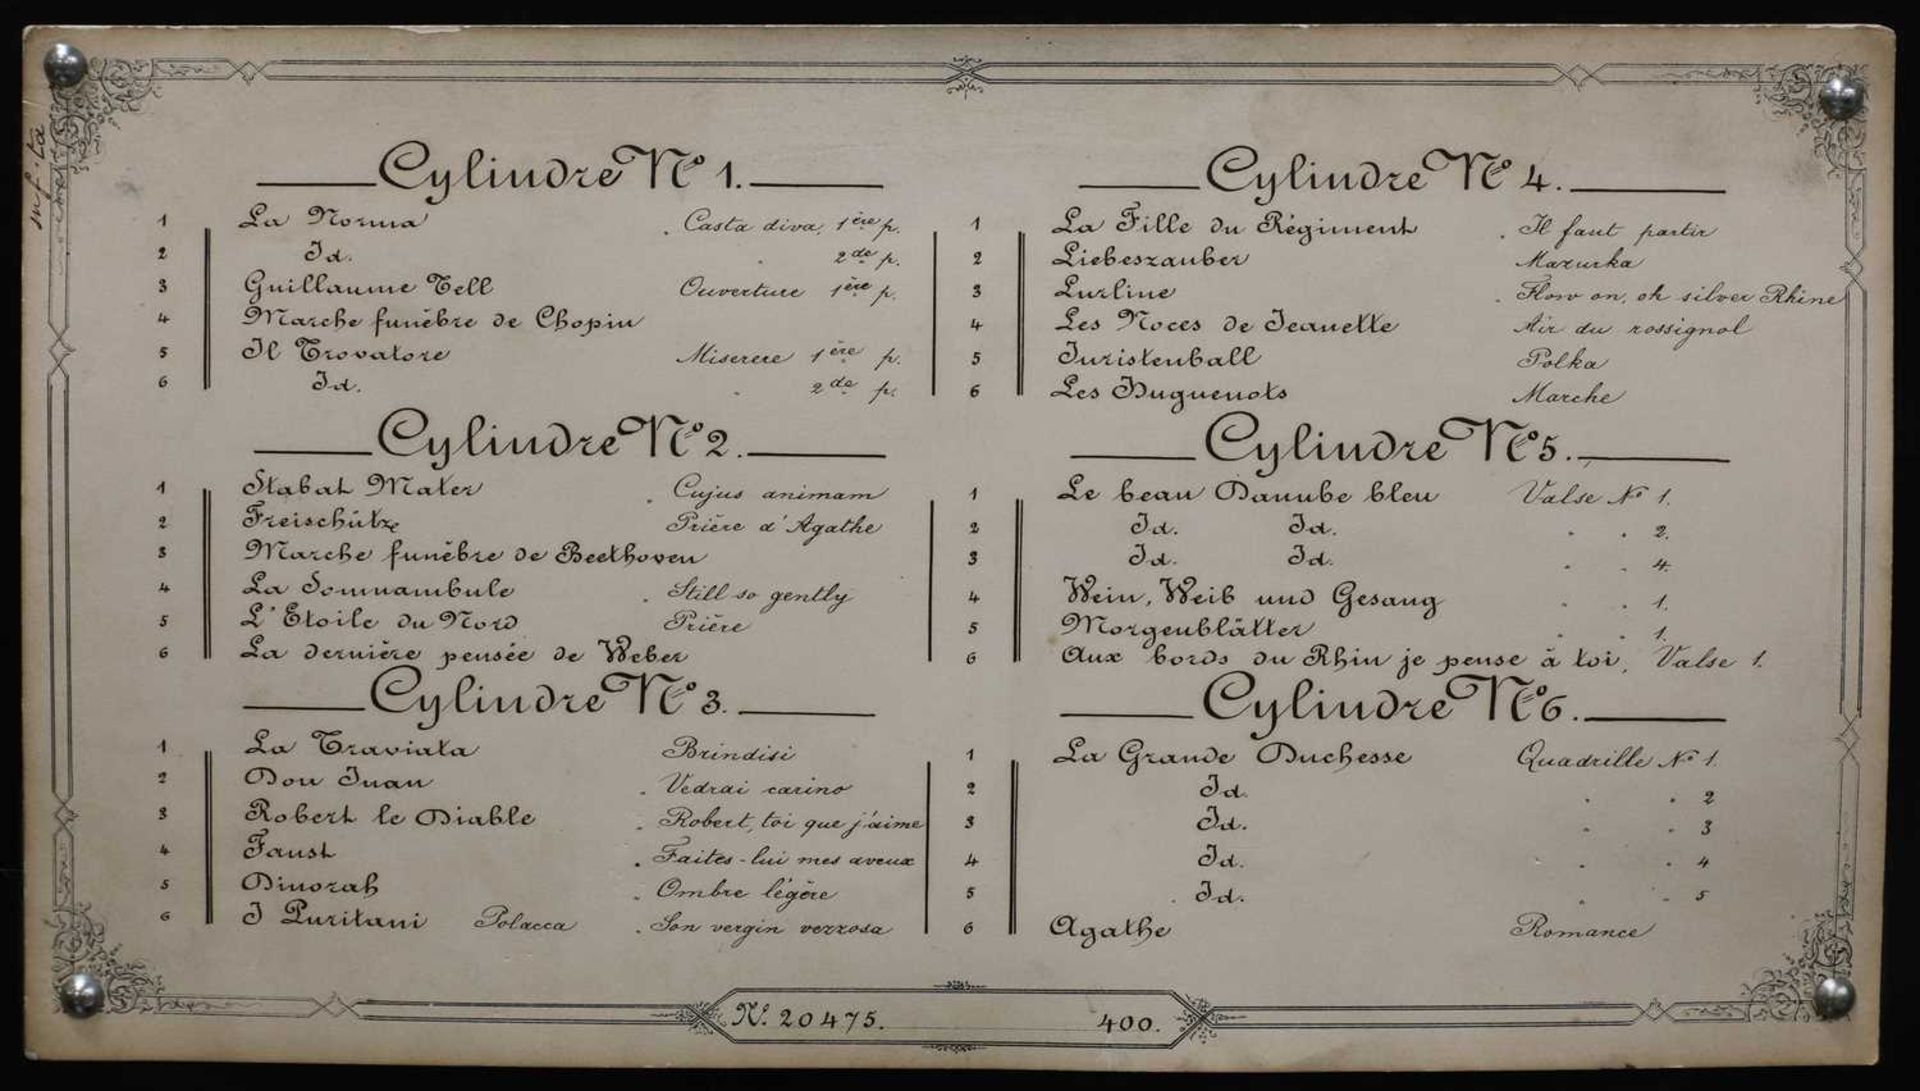 Cylindre No 1.
1 La Norma " Casta diva, 1ère p.
2 Id. " 2de p.
3 Guillaume Tell Ouverture 1ère p.
4 Marche funèbre de Chopin
5 Il Trovatore Miserere 1ère p.
6 Id. " 2de p.
Cylindre No 2.
1 Stabat Mater " Cujus animam
2 Freischütze Prière d'Agathe
3 Marche funèbre de Beethoven
4 La Somnambule " Still so gently
5 L'Etoile du Nord Prière
6 La dernière pensée de Weber
Cylindre No 3.
1 La Traviata Brindisi
2 Don Juan " Vedrai carino
3 Robert le Diable " Robert, toi que j'aime
4 Faust " Faites-lui mes aveux
5 Dinorah " Ombre légère
6 I Puritani Polacca " Son vergin verzosa
Cylindre No 4.
1 La Fille du Régiment " Il faut partir
2 Liebeszauber Mazurka
3 Lurline " Flow on, oh silver Rhine
4 Les Noces de Jeanette Air du rossignol
5 Juristenball Polka
6 Les Huguenots Marche
Cylindre No 5.
1 Le beau Danube bleu Valse No 1.
2 Id. Id. " " 2.
3 Id. Id. " " 4.
4 Wein, Weib und Gesang " " 1.
5 Morgenblätter " " 1.
6 Aux bords du Rhin je pense à toi, Valse 1.
Cylindre No 6.
1 La Grande Duchesse Quadrille No 1.
2 Id. " " 2
3 Id. " " 3
4 Id. " " 4
5 Id. " " 5
6 Agathe Romance
No. 20475. 400.